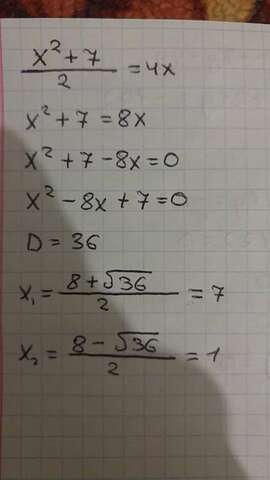 x² + 7 / 2 = 4x
x² + 7 = 8x
x² + 7 - 8x = 0
x² - 8x + 7 = 0
D = 36
x₁ = 8 + √36 / 2 = 7
x₂ = 8 - √36 / 2 = 1